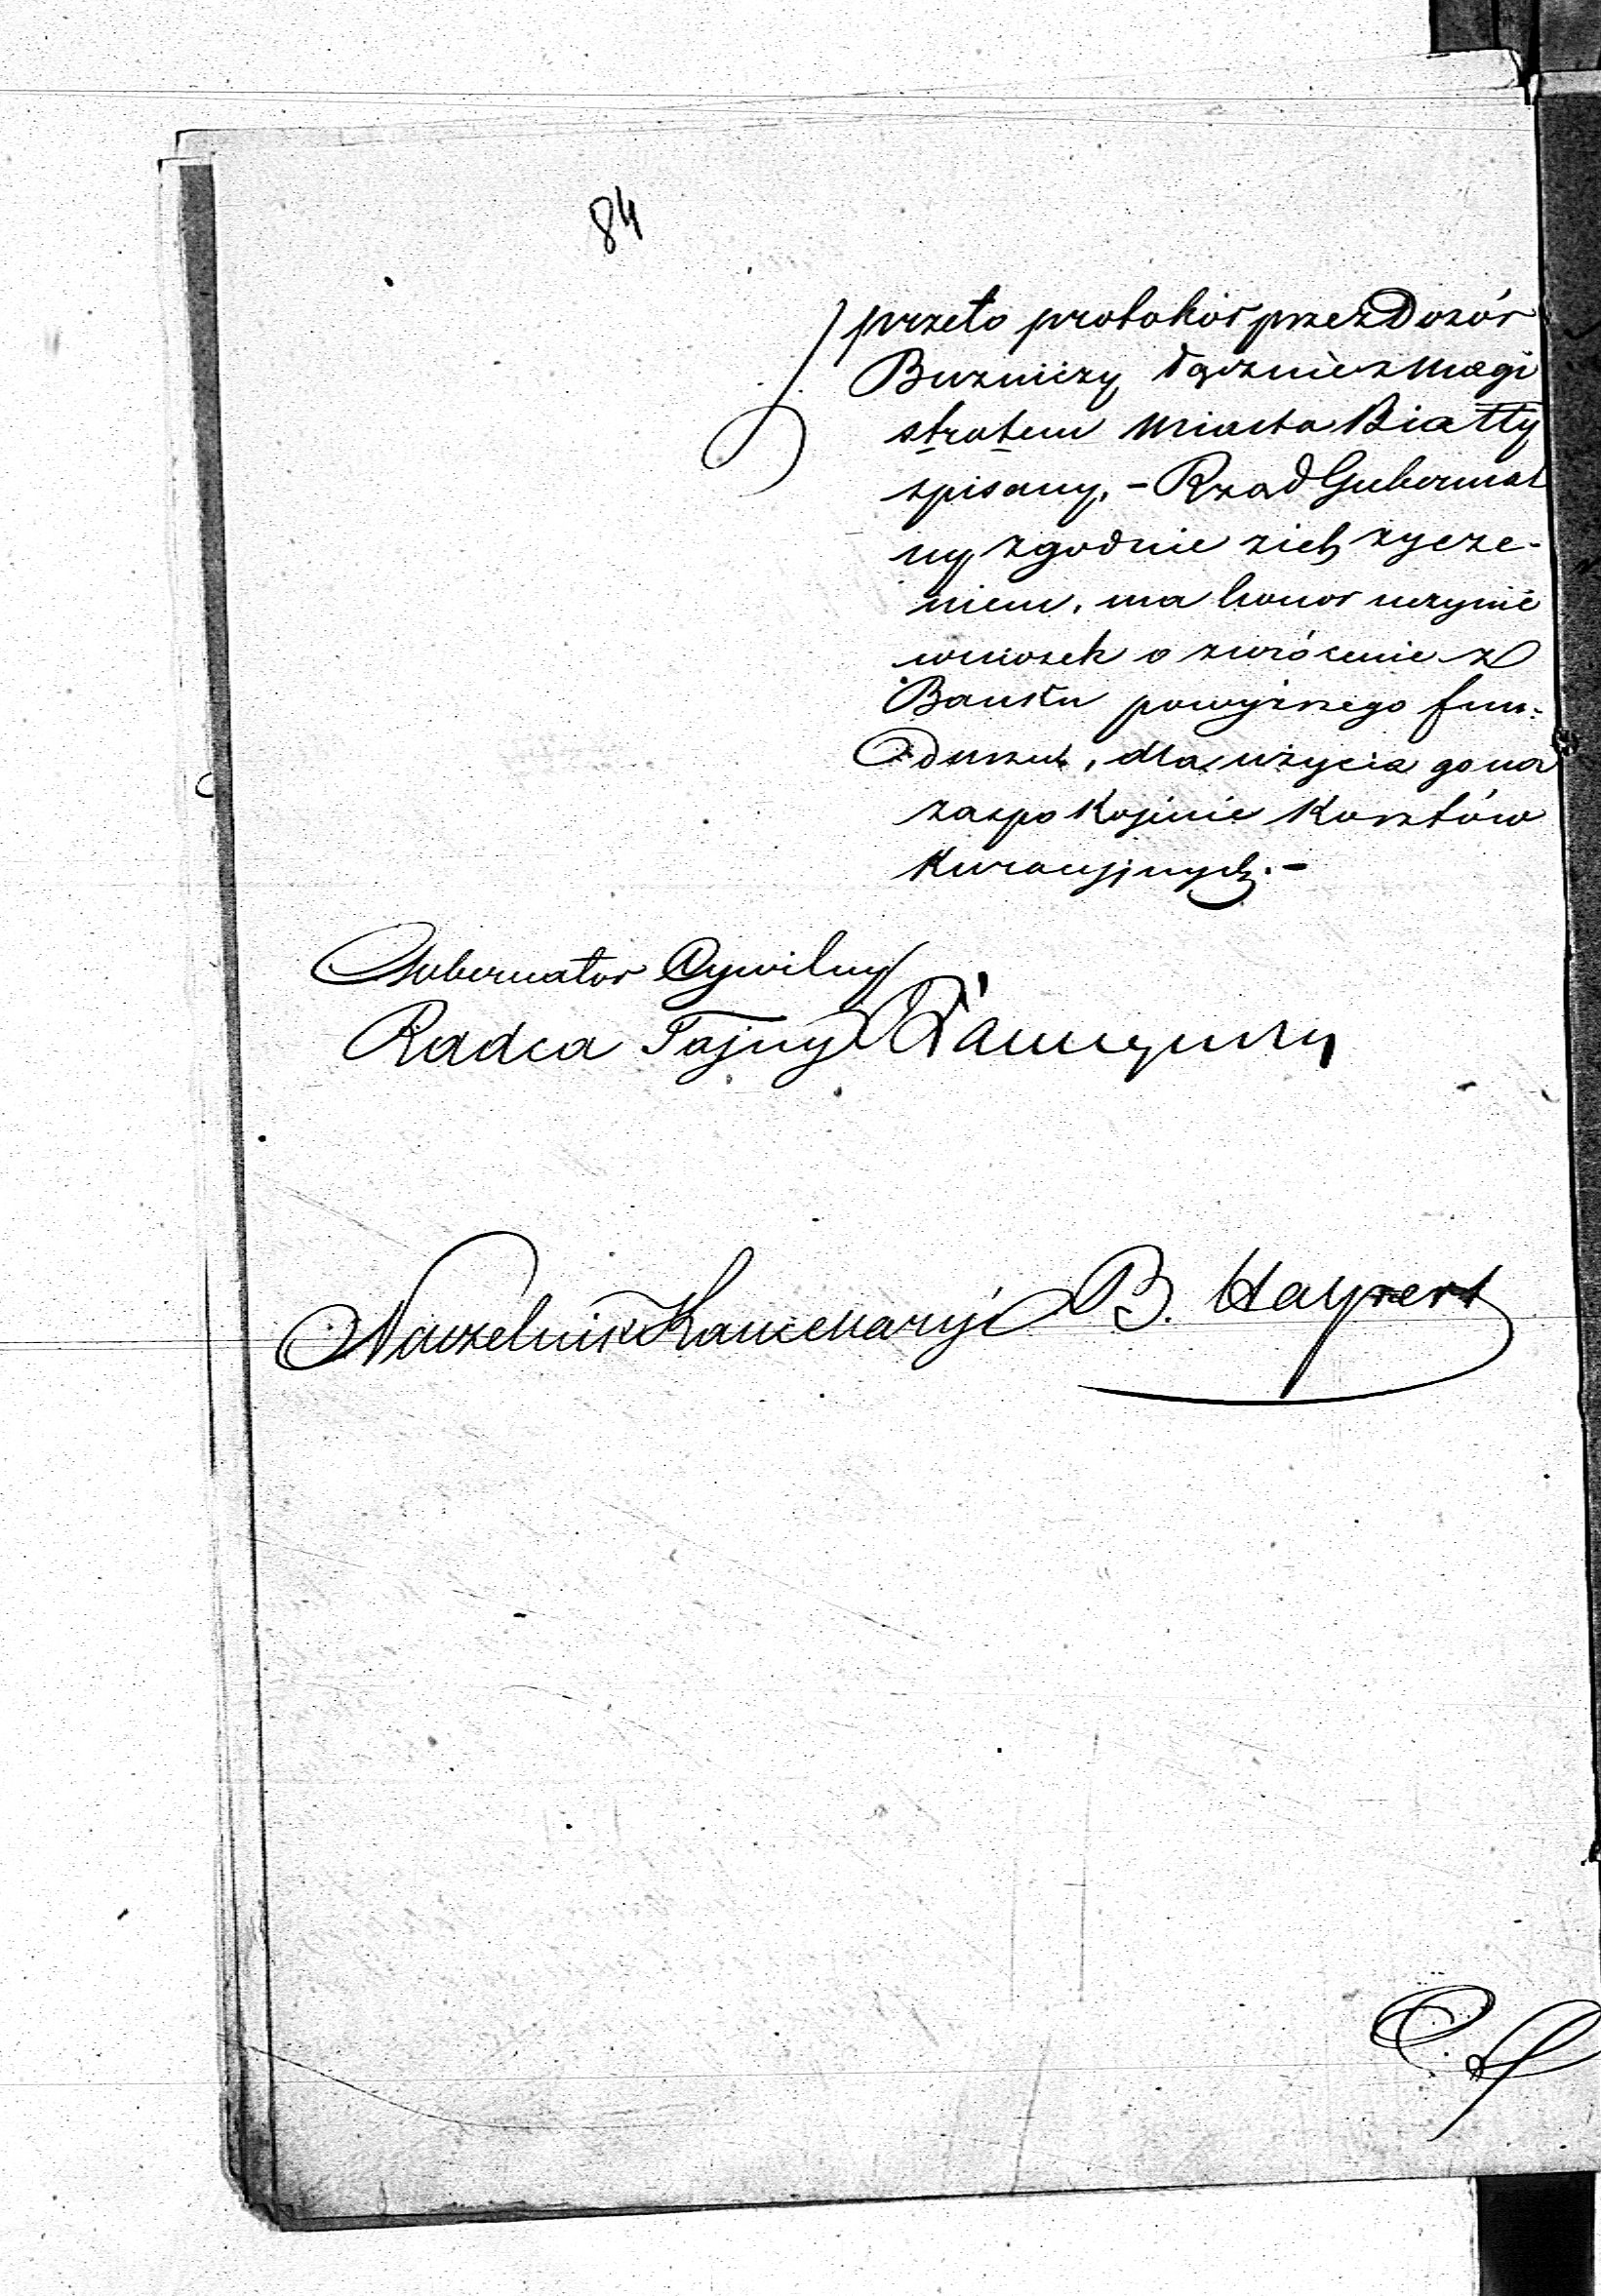 84
przeto protokół przez Dozór
Bużniczy łącznie z Magi
stratem Miasta Biały
spisany, - Rząd Gubernial
ny zgodnie z ich życze-
niem, ma honor uczynić
wniosek o zwrócenie z
Banku powyższego fun-
duszu, dla użycia go na
zaspokojenie kosztów
kuracyjnych. -
Gubernator Cywilny
Radca Tajny
Naczelnik Kancellaryi B.